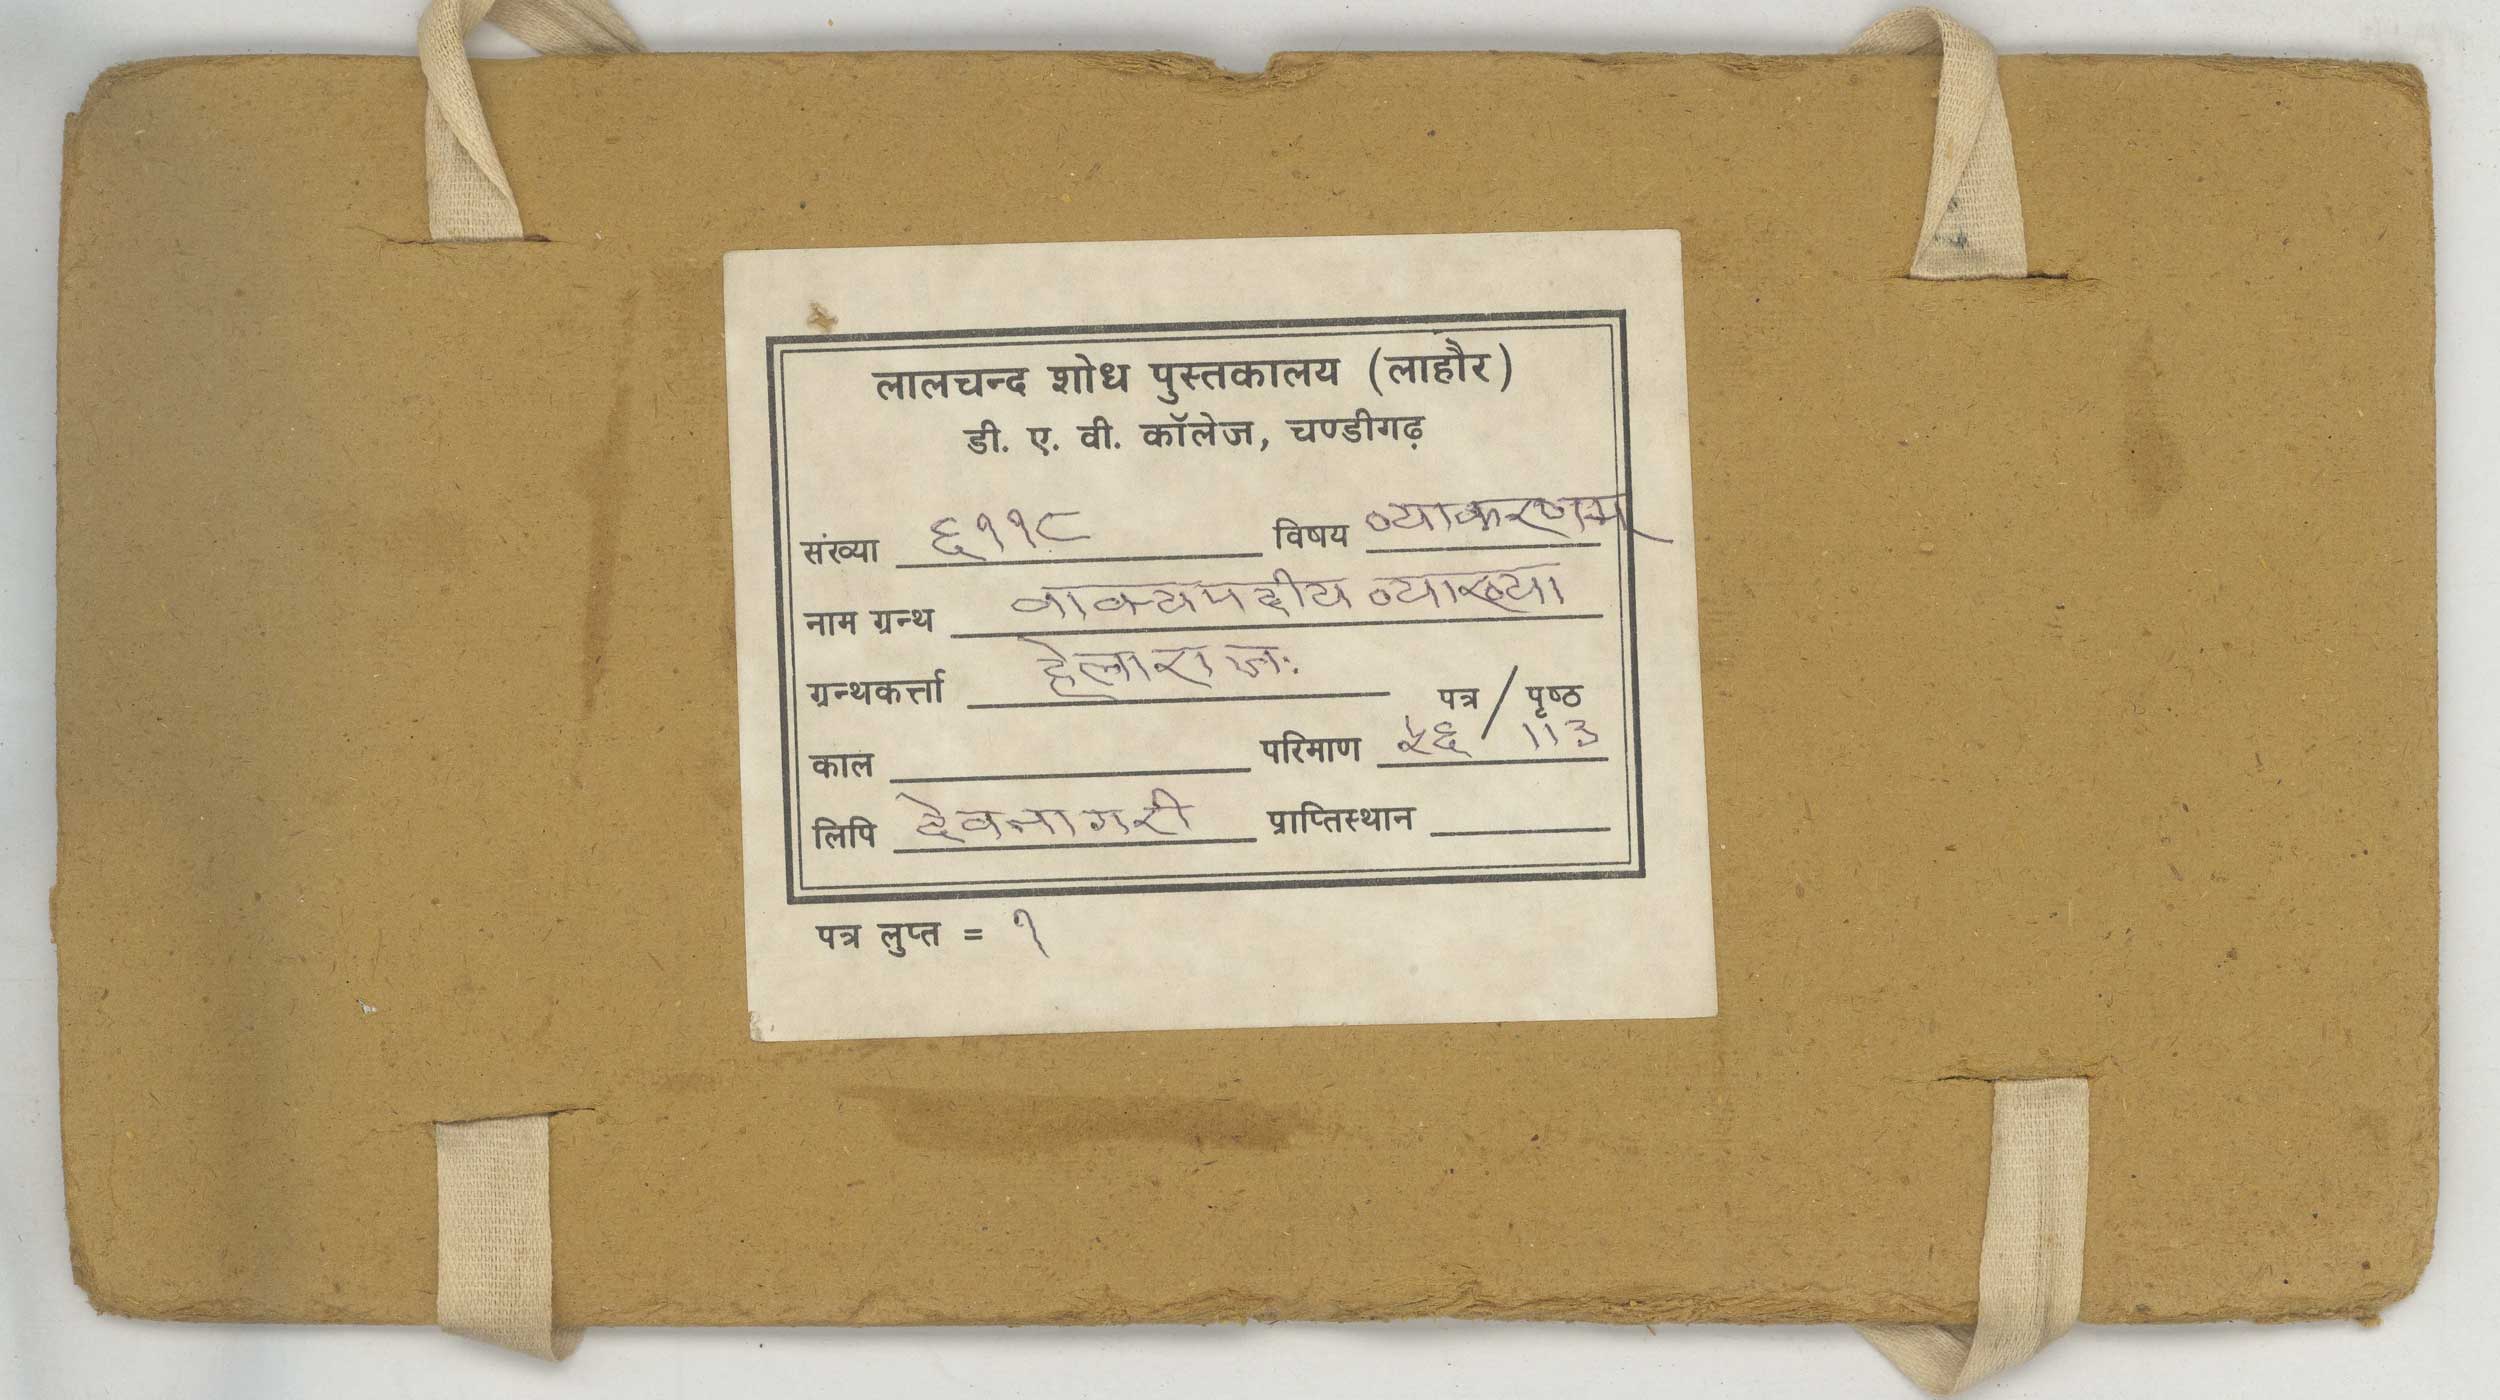 लालचन्द शोध पुस्तकालय (लाहौर)
डी. ए. वी. कॉलेज, चण्डीगढ़
संख्या ६११८ विषय व्याकरणम्
नाम ग्रन्थ वाक्यपदीय व्याख्या
ग्रन्थकर्त्ता हेलाराजः पत्र / पृष्ठ
काल परिमाण ५६ / 113
लिपि देवनागरी प्राप्तिस्थान
पत्र लुप्त = १